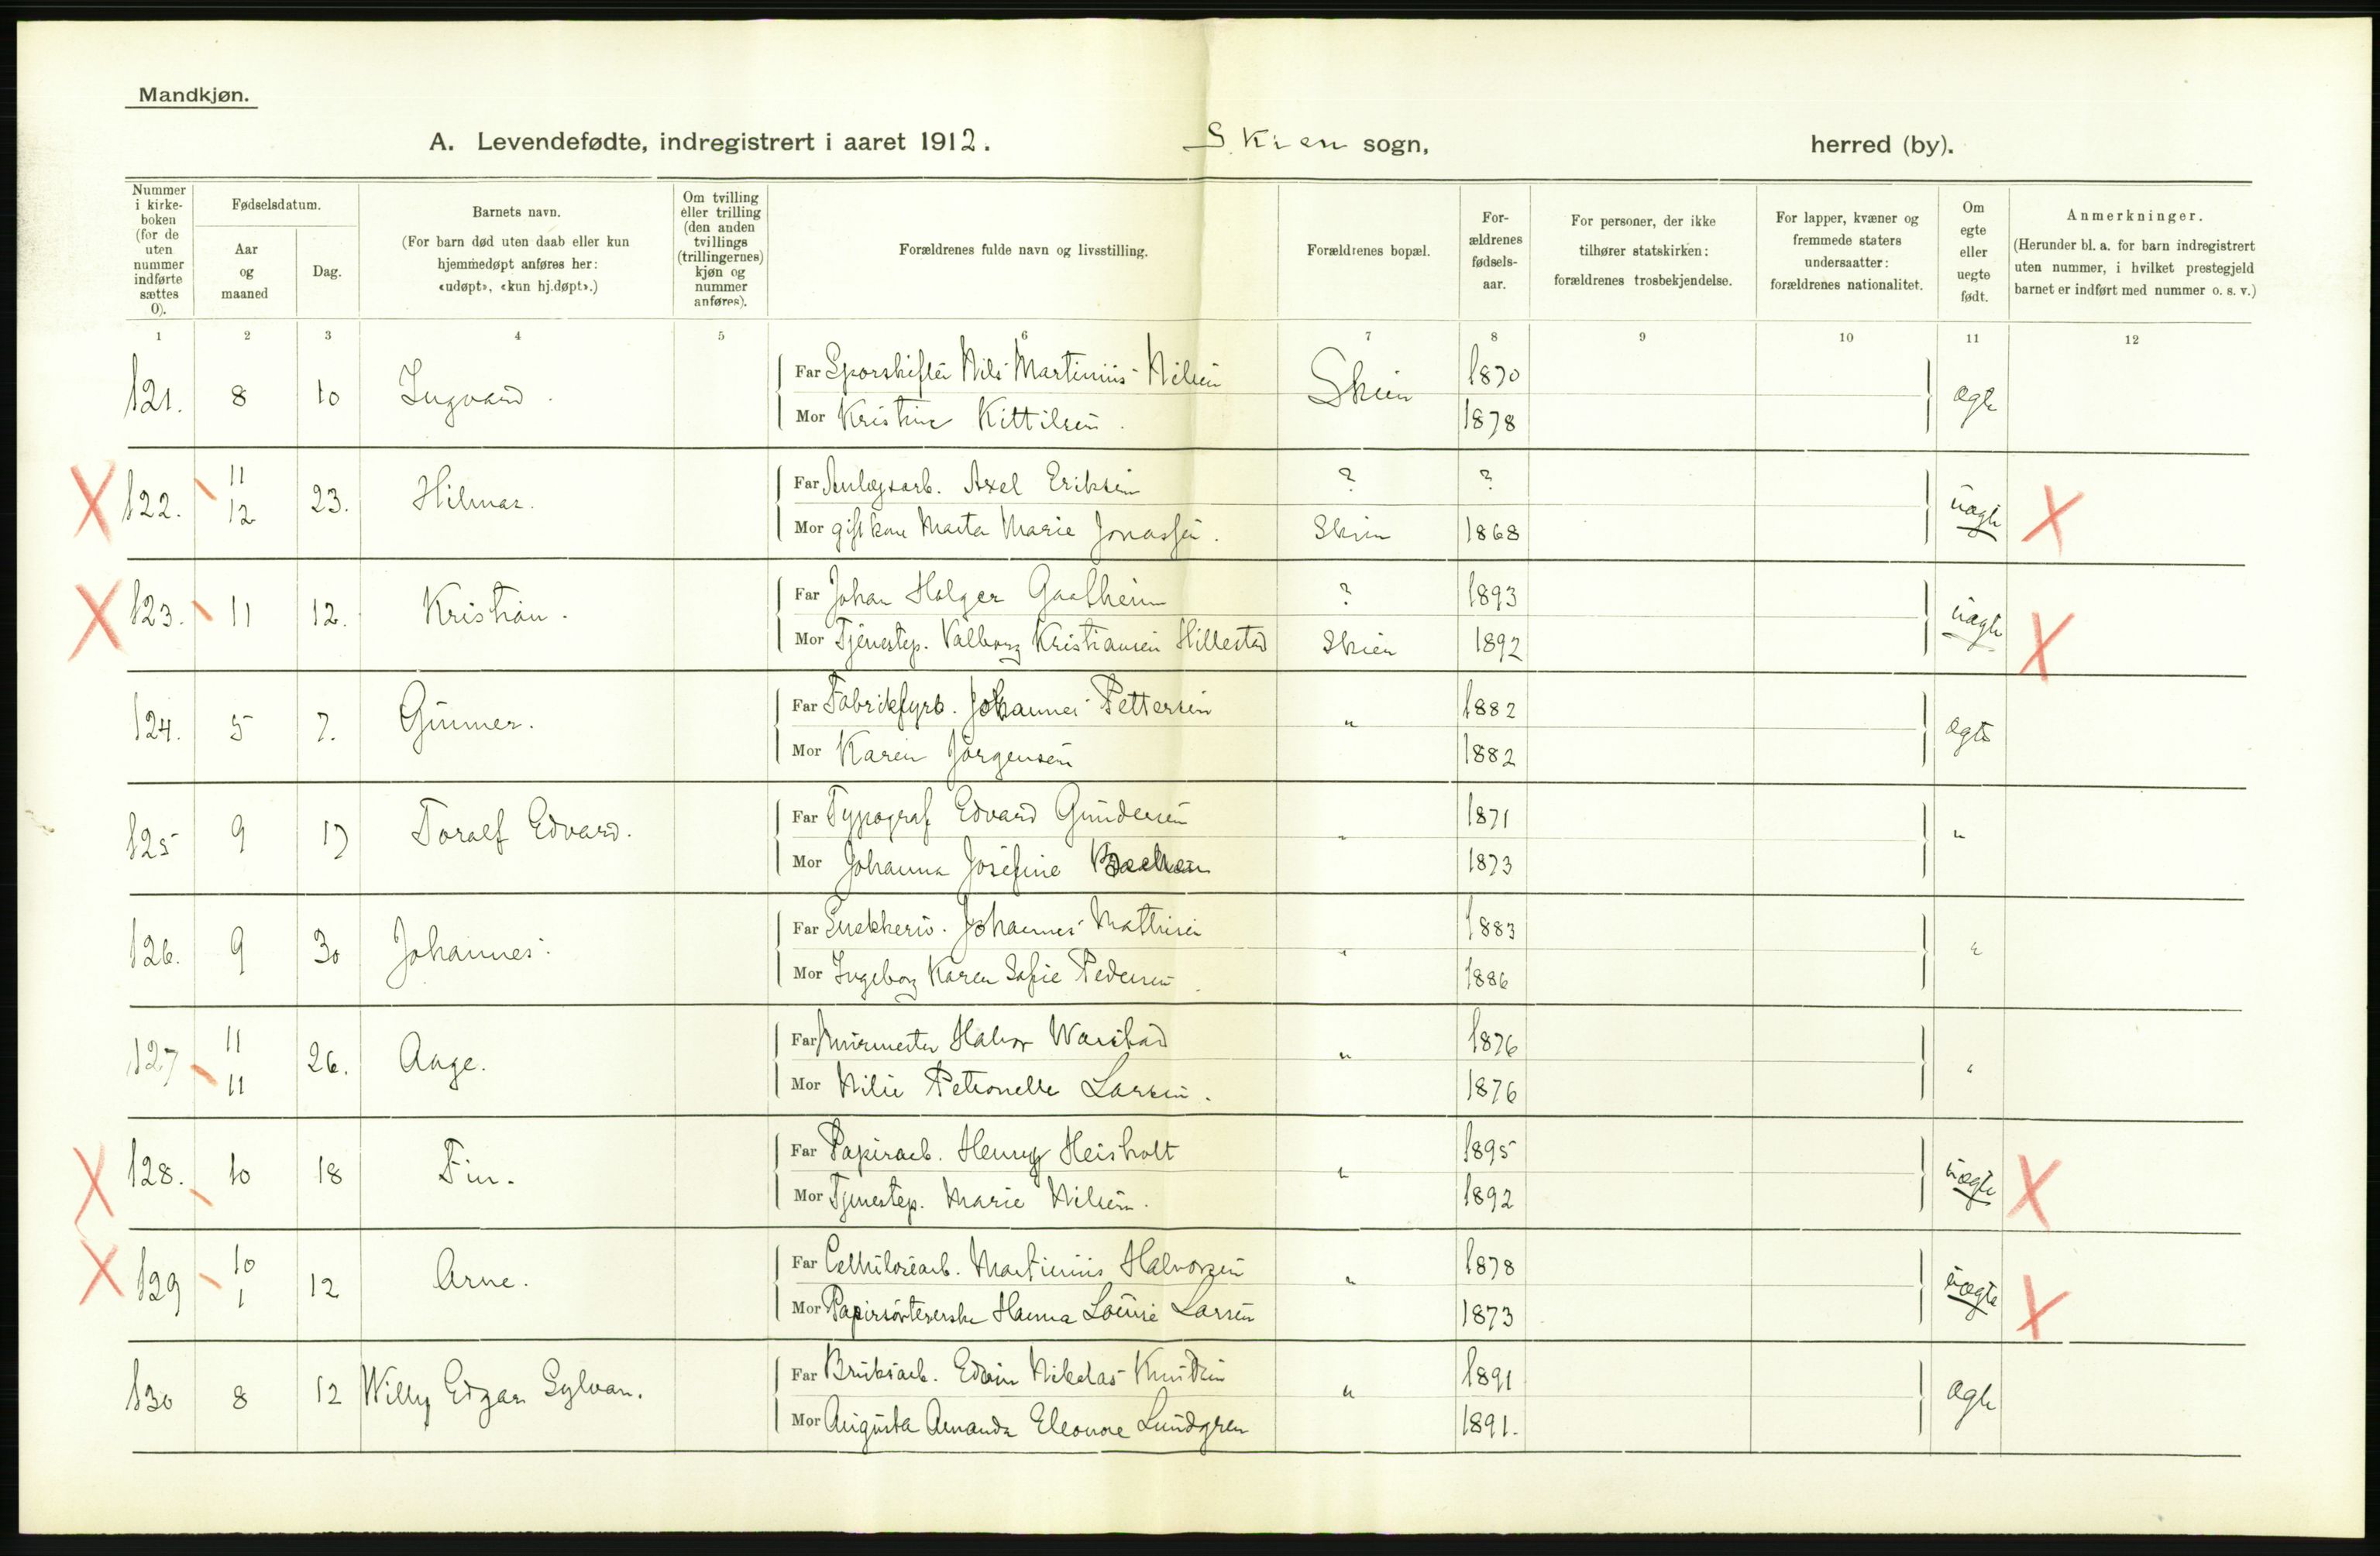 Mandkjøn.
A. Levendefødte, indregistrert i aaret 1912. Skien sogn, herred (by).
Nummer i kirke-boken (for de uten nummer indførte sættes 0).
Fødselsdatum.
Aar og maaned
Dag.
Barnets navn.
(For barn død uten daab eller kun hjemmedøpt anføres her: «udøpt», «kun hj.døpt».)
Om tvilling eller trilling (den anden tvillings (trillingernes) kjøn og nummer anføres).
Forældrenes fulde navn og livsstilling.
Forældrenes bopæl.
For-ældrenes fødsels-aar.
For personer, der ikke tilhører statskirken: forældrenes trosbekjendelse.
For lapper, kvæner og fremmede staters undersaatter: forældrenes nationalitet.
Om egte eller uegte født.
Anmerkninger.
(Herunder bl. a. for barn indregistrert uten nummer, i hvilket prestegjeld barnet er indført med nummer o. s. v.)
1 2 3 4 5 6 7 8 9 10 11 12
121. 8 10 Ingvard. Far Sporskifter Nils Martinius Nilsen Skien 1870 ægte
Mor Kristine Kittilsen. 1878
X 122. 11 12 23. Hilmar. Far Anlægsarb. Axel Eriksen ? ? uægte X
Mor gift kone Marta Marie Jonassen. Skien 1868
X 123. 11 12. Kristian. Far Johan Holger Gaalheim ? 1893 uægte X
Mor Tjenestep. Valborg Kristiansen Hillestad Skien 1892
124. 5 7. Gunner. Far Fabrikfyrb. Johannes Pettersen " 1882 ægte
Mor Karen Jørgensen 1882
125 9 17 Toralf Edvard. Far Typograf Edvard Gundersen " 1871 "
Mor Johanna Josefine 1873
126. 9 30 Johannes. Far Johannes Mathisen " 1883 "
Mor Ingeborg Karen Sofie Pedersen. 1886
127 11 11 26. Aage. Far Murmester Halvor " 1876 "
Mor Nilie Petronelle Larsen. 1876
X 128. 10 18 Fin. Far Papirarb. Henry Heisholt " 1895 uægte X
Mor Tjenestep. Marie Nilsen. 1892
X 129 10 1 12 Arne. Far Cellulosearb. Martinius Halvorsen " 1878 uægte X
Mor Papirsorterske Hanna Louise Larsen 1873
130 8 12 Willy Edgar Sylvan. Far Bruksarb. Edvin Nikolas Knudsen " 1891 ægte
Mor Augusta Amanda Eleonore Lundgren 1891.